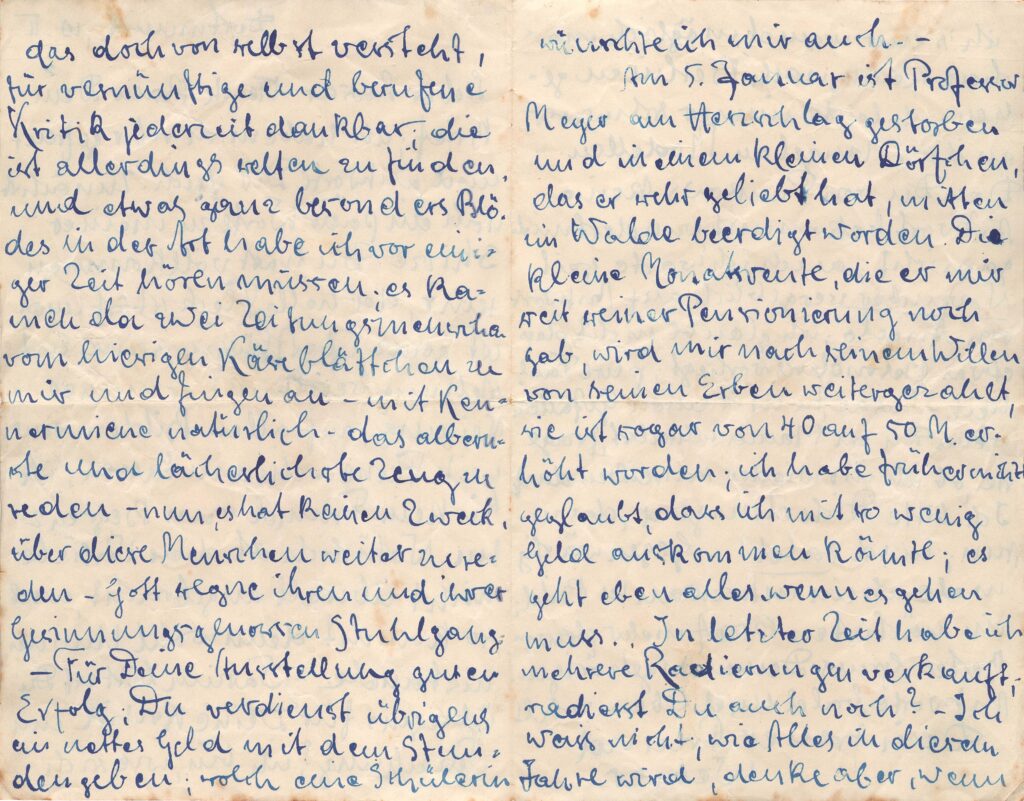 das doch von selbst versteht,
für vernünftige und berufene
Kritik jederzeit dankbar; die
ist allerdings selten zu finden,
und etwas ganz besonders Blö-
des in der Art habe ich vor eini-
ger Zeit hören müssen; es ka-
men da zwei Zeitungsmenschen
vom hiesigen Käseblättchen zu
mir und fingen an - mit Ken-
nermiene natürlich - das albern-
ste und lächerlichste Zeug zu
reden - nun, es hat keinen Zweck,
über diese Menschen weiter zu re-
den - Gott segne ihren und ihrer
Gesinnungsgenossen Stuhlgang.
- Für Deine Ausstellung guten
Erfolg; Du verdienst übrigens
ein nettes Geld mit dem Stun-
dengeben; solch eine Schülerin
wünschte ich mir auch. -
Am 5. Januar ist Professor
Meyer am Herzschlag gestorben
und in einem kleinen Dörfchen,
das er sehr geliebt hat, mitten
im Walde beerdigt worden. Die
kleine Monatsrente, die er mir
seit seiner Pensionierung noch
gab, wird mir nach seinem Willen
von seinen Erben weitergezahlt,
sie ist sogar von 40 auf 50 M. er-
höht worden; ich habe früher nicht
geglaubt, dass ich mit so wenig
Geld auskommen könnte; es
geht eben alles, wenn es gehen
muss. In letzter Zeit habe ich
mehrere Radierungen verkauft;
radierst Du auch noch? - Ich
weiss nicht, wie Alles in diesem
Jahre wird, denke aber, wenn